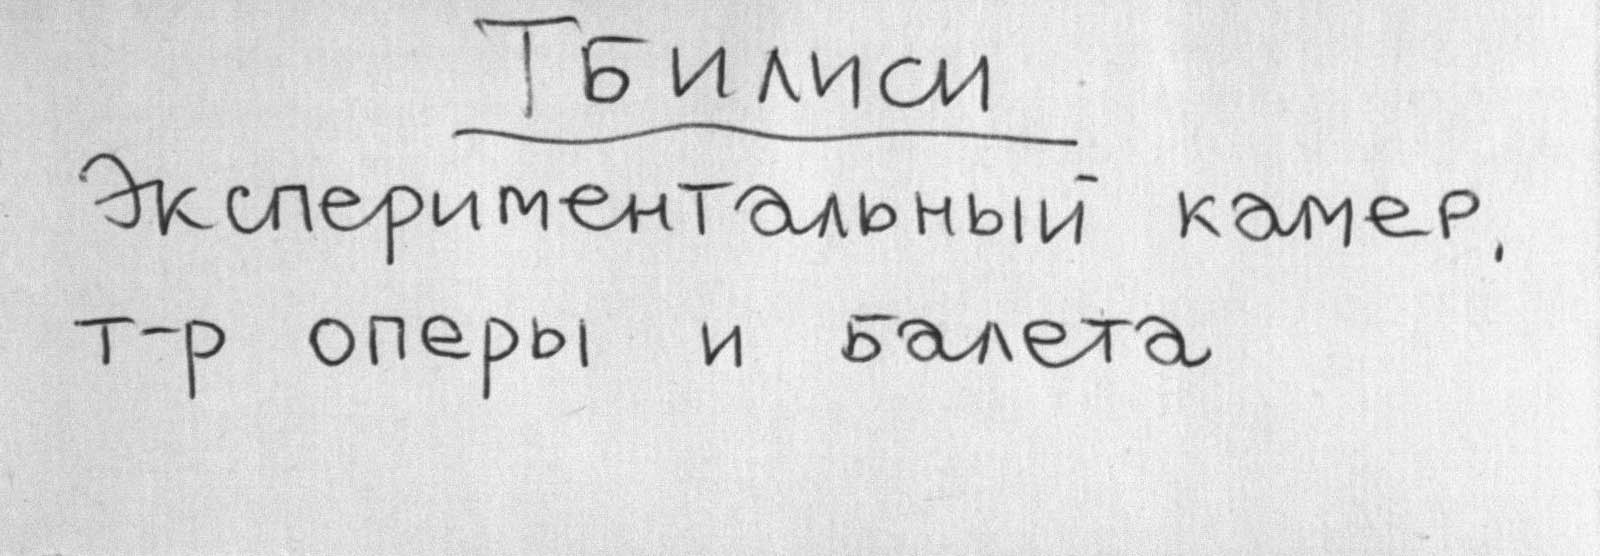 Тбилиси
Экспериментальный камер.
т-р оперы и балета